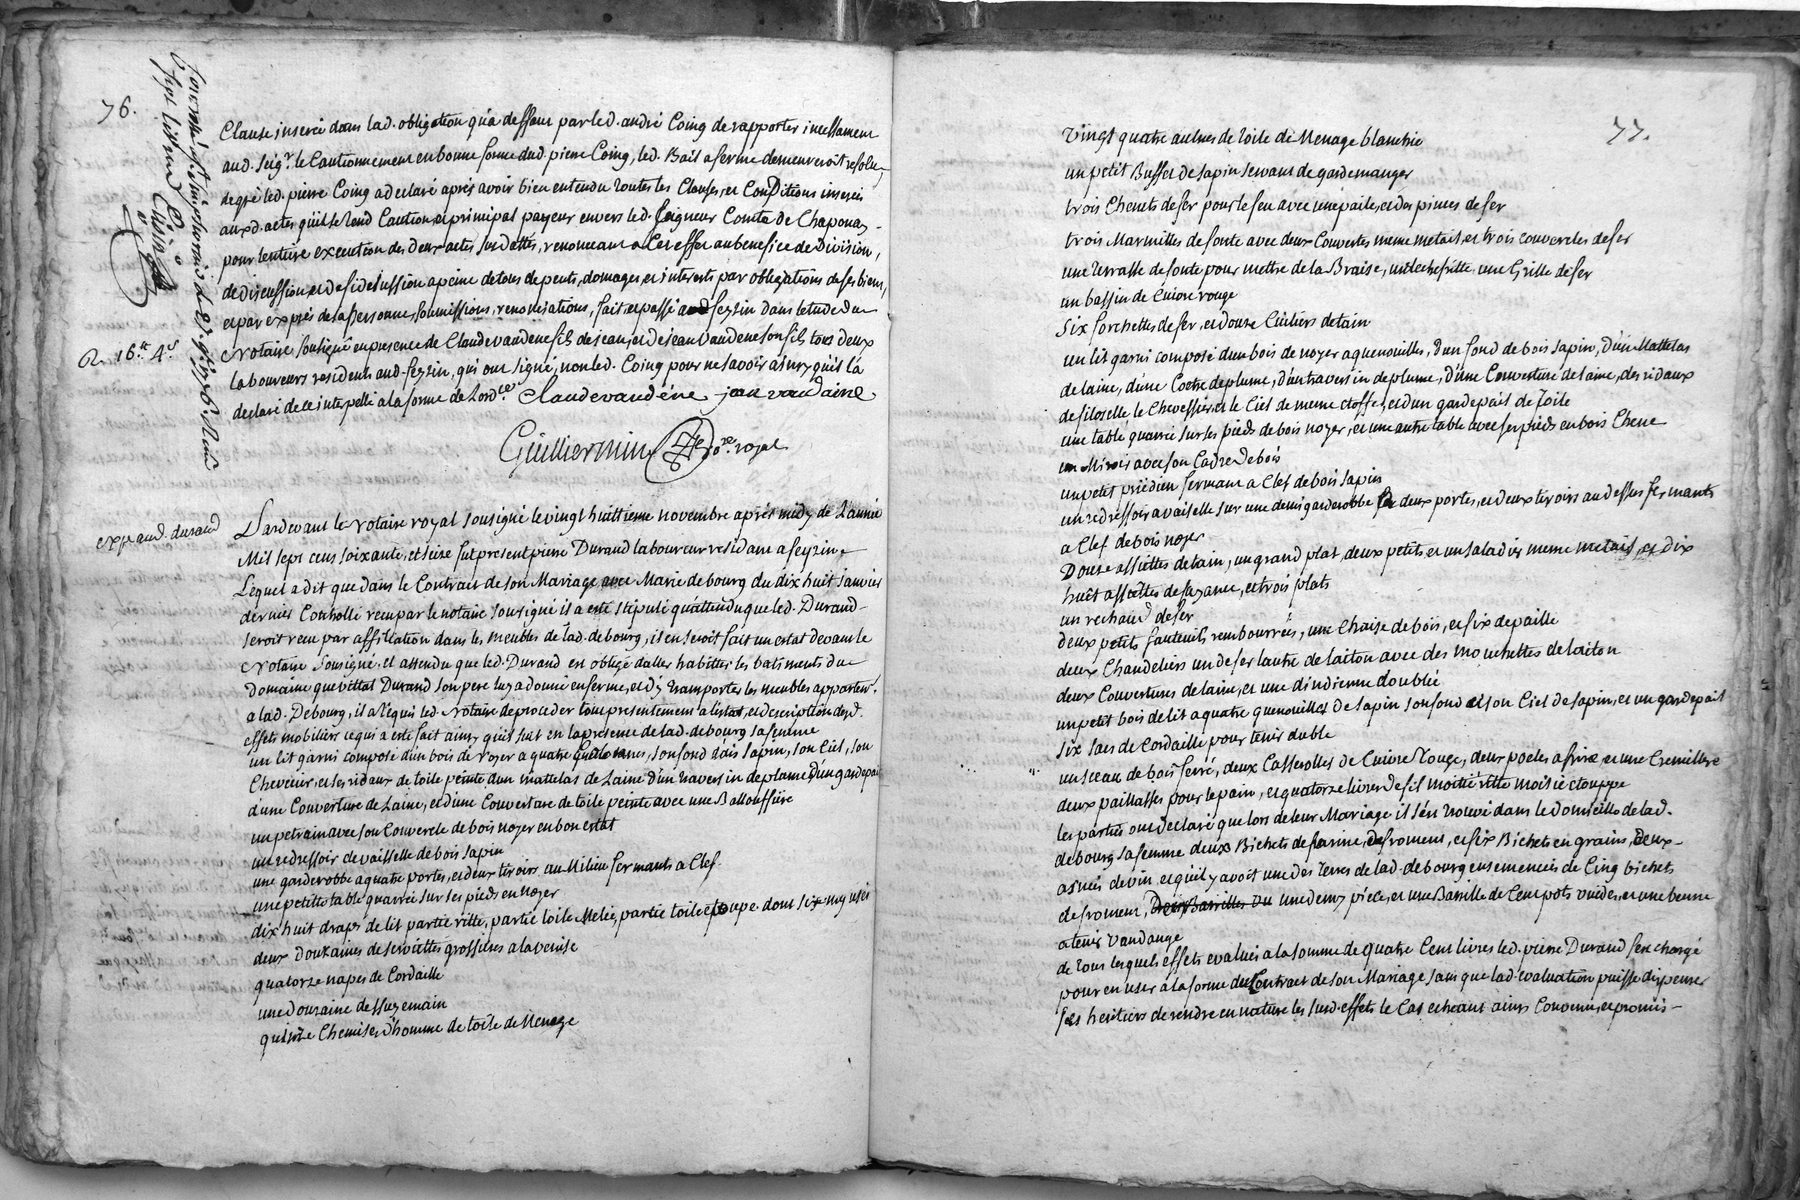 76.
Clause inserée dans lad. obligation qu'a deffaut par led. andré Coing de rapporter incessament
aud. seigr. le Cautionnement en bonne forme dud. pierre Coing, led. Bail a ferme demeureroit resolu,
degré led. pierre Coing a declaré aprés avoir bien entendu toutes les Clauses, et Conditions inserées
auxd. actes qu'il se rend Caution et principal payeur envers led. seigneur Comte de Chaponay
pour l'entiere execution des deux actes susdattés, renonceant a Cet effet au benefice de Division,
de discussion, et de fidejussion a peine de tous depents, domages, et interets par obligations de ses biens,
et par exprés de sa personne, soumissions, renonciations, fait et passé a feyzin dans letude du
Notaire soussigné en presence de Claude vaudene fils de jean, et de jean vaudene son fils tous deux
laboureurs residents aud. feyzin, qui ont signé, non led. Coing pour ne savoir ainsy qu'il la
declaré de ce interpellé a la forme de Lordce. Claude vaudéne jean vaudaine
R. 16 tt 4 s
Guilliermin Nore. royal
exp. aud. durand
Pardevant le Notaire royal soussigné le vingt huittieme novembre aprés midy de L'année
Mil sept cens soixante, et seize fut present pierre Durand laboureur residant a feyzin
Lequel a dit que dans le Contract de son Mariage avec Marie debourg du dix huit janvier
dernier Controllé receu par le notaire soussigné il a esté stipulé qu'attendu que led. Durand
seroit receu par affiliation dans les meubles de lad. debourg, il en seroit fait un estat devant le
Notaire soussigné, et attendu que led. Durand est obligé daller habitter les batiments du
Domaine que vittal Durand son pere luy a donné en ferme, et d'y transporter les meubles apparten.
a lad. Debourg, il a requis led. Notaire de proceder tout presentement a l'estat, et description desd.
effets mobiliers ce qui a esté fait ainsy qu'il suit en la presence de lad. debourg sa femme
un lit garni composé d'un bois de noyer a quatre quenouilles, son fond d'ais sapin, son Ciel, son
Chevecier, et ses rideaux de toile peinte d'un mattelas de Laine d'un traversin de plume, d'un gardepail
d'une Couverture de Laine, et d'une Couverture de toile peinte avec une Ballouffiere
un petrain avec son Couvercle de bois noyer en bon estat
un redressoir de vaisselle de bois sapin
une garderobbe a quatre portes, et deux tiroirs au Milieu fermants a Clef
une petitte table quarrée sur ses pieds en noyer
dix huit draps de lit partie ritte, partie toile Melée, partie toile etoupe dont six my usés
deux douzaines de serviettes grossieres a la venise
quatorze napes de Cordaille
une douzaine dessuyemain
quinze Chemises d'homme de toile de Menage
77.
Vingt quatre aulnes de toile de Menage blanchie
un petit Buffet de sapin servant de gardemanger
trois Chenets de fer pour le feu avec une paile, et des pinces de fer
trois Marmittes de fonte avec deux Couvertes meme metail, et trois couvercles de fer
une terrasse de fonte pour mettre de la Braise, une lechefritte, une Grille de fer
un bassin de Cuivre rouge
Six forchettes de fer, et douze Cuiliers detain
un lit garni composé d'un bois de noyer a quenouilles, d'un fond de bois sapin, d'un Mattelas
de laine, d'une Coetre de plume, d'un traversin de plume, d'une Couverture de laine, des ridaux
de filozelle le Chevessier, et le Ciel de meme etoffe, et d'un gardepail de Toile
une table quarrée sur ses pieds de bois noyer, et une autre table avec ses pieds en bois Chene
un Miroir avec son Cadre de bois
un petit priedieu fermant a Clef de bois sapin
un redressoir a vaiselle sur une demi garderobbe a deux portes, et deux tiroirs au dessus fermants
a Clef de bois noyer
Douze assiettes detain, un grand plat, deux petits, et un saladier meme metail, et dix
huit assiettes de fayance, et trois plats
un rechaud de fer
deux petits fauteuils rembourrés, une Chaise de bois, et six de paille
deux Chandeliers un de fer lautre de laiton avec des mouchettes de laiton
deux Couvertures de laine, et une d'indienne doublée
un petit bois de lit a quatre quenouilles de sapin son fond et son Ciel de sapin, et un gardepail
six sacs de Cordaille pour tenir du blé
un sceau de bois ferré, deux Casserolles de Cuivre Rouge, deux poeles a frire et une Cremillere
deux paillasses pour le pain, et quatorze livres de fil moitié ritte moitié etouppe
les parties ont declaré que lors de leur Mariage il s'en trouvé dans le Domicille de lad.
debourg sa femme deux Bichets de farine, de froment, et six Bichets en grains, Deux
asnées de vin et qu'il y avoit une des terres de lad. debourg ensemencée de Cinq bichets
de froment, Deux Barrilles Ou une demy piéce, et une Barrille de Cent pots vuides, et une benne
a tenir vandange
de tous lesquels effets evalués a la somme de quatre Cent livres led. pierre Durand sest chargé
pour en user a la forme du Contract de son Mariage sans que lad. evaluation puisse dispenser
ses heritiers de rendre en nature les susd. effets le Cas echeant ainsy Convenu, et promis